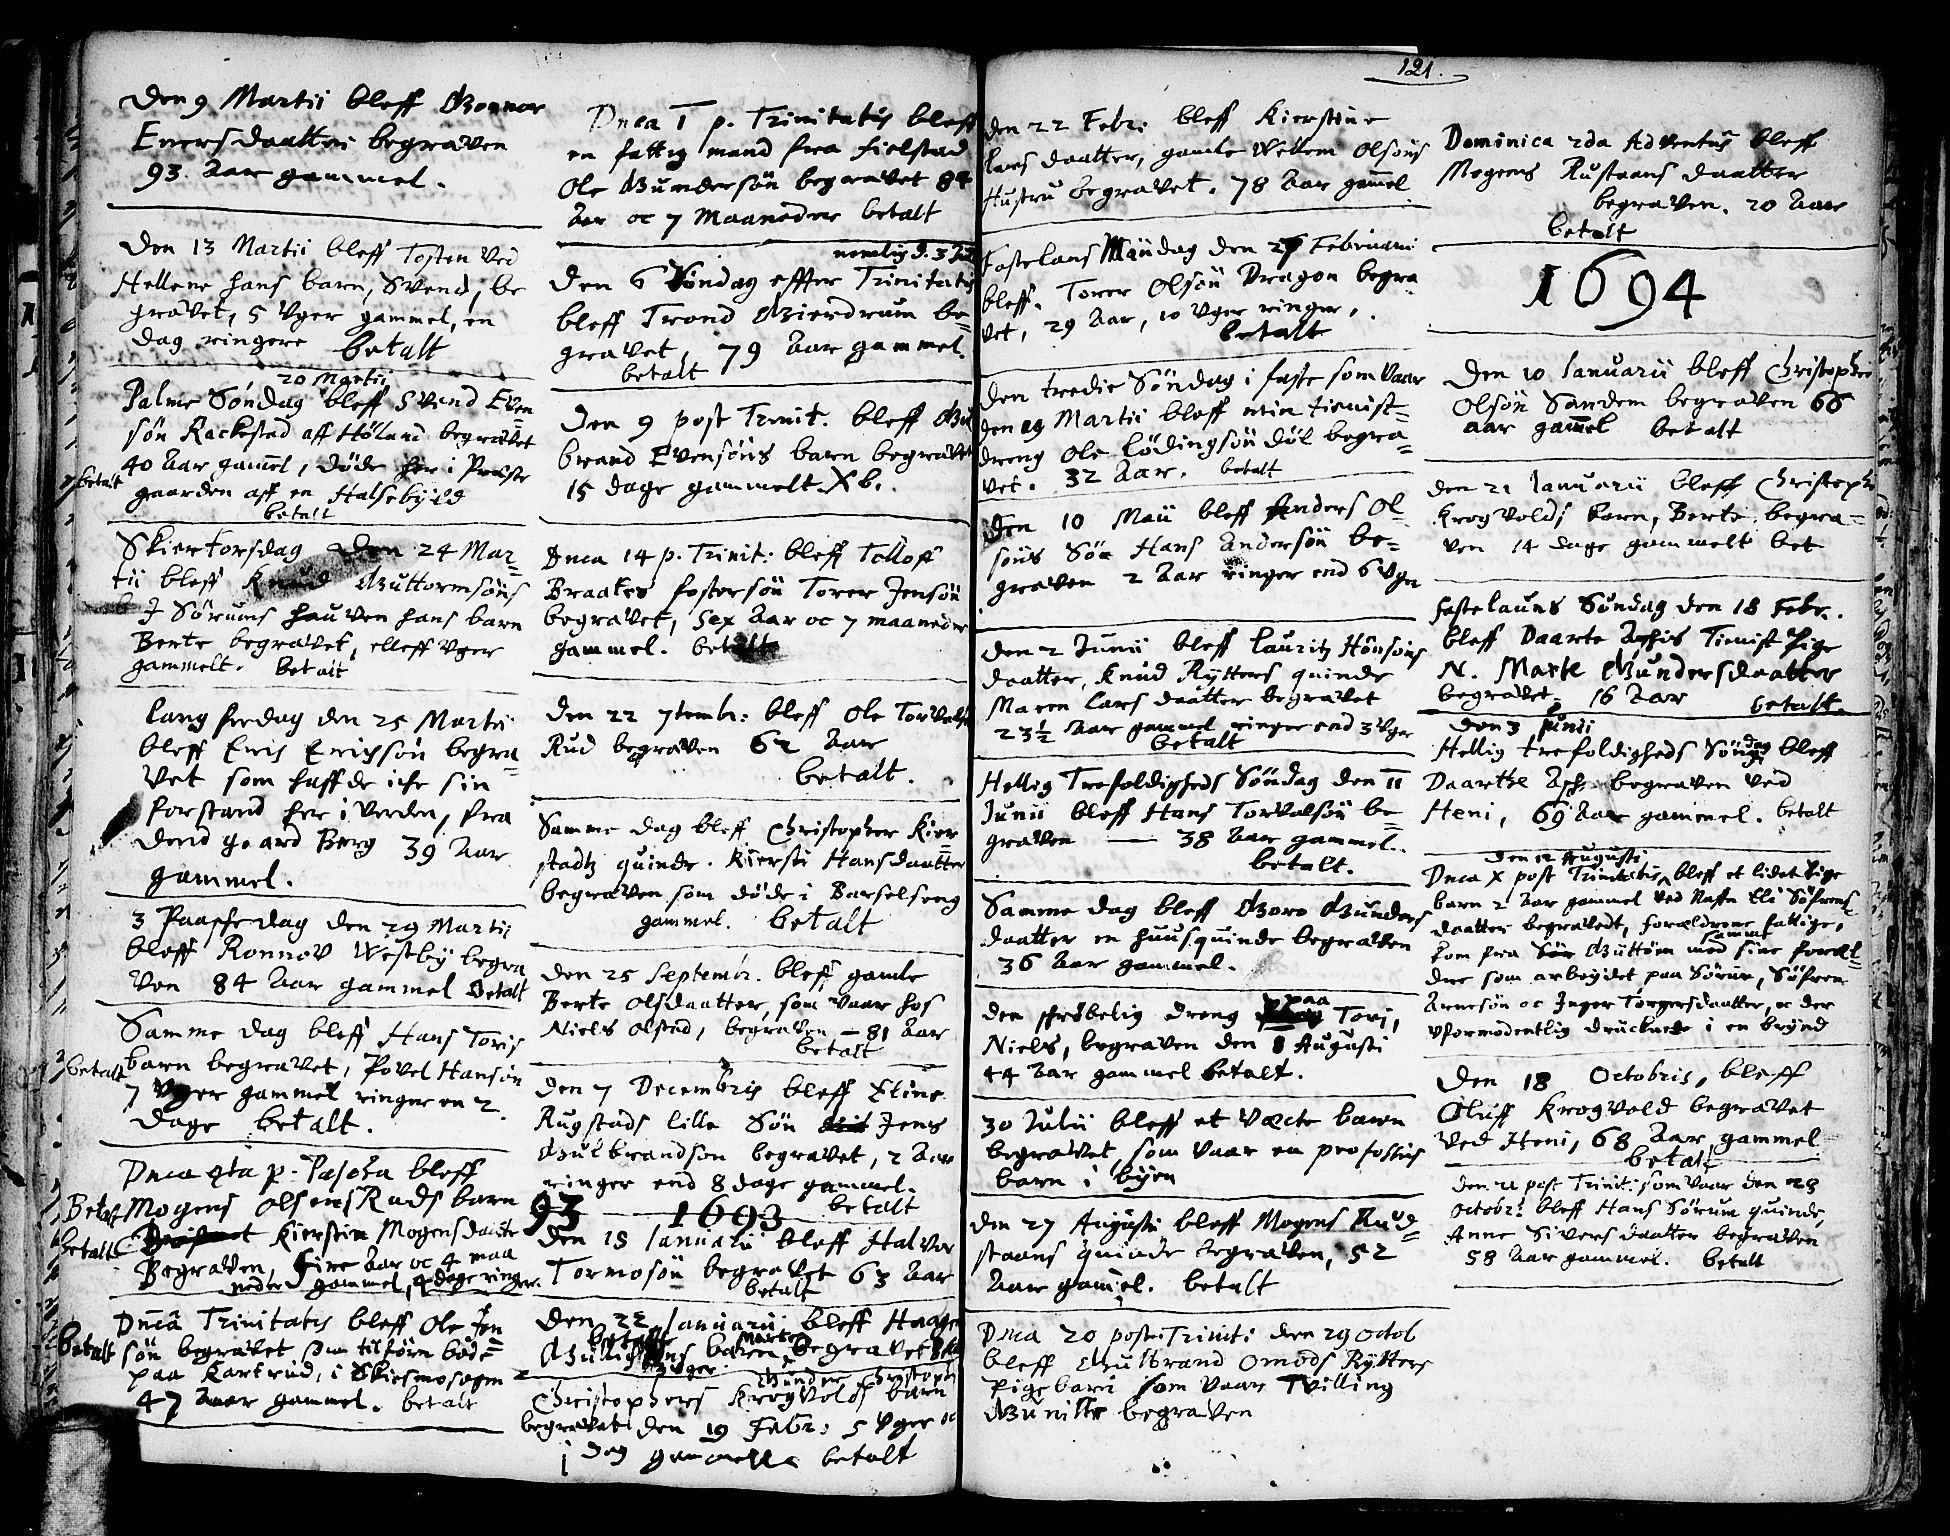 Den 9 Martii bleff Gonnor
Enersdaatter begraven
93. Aar gammel.
Den 13 Martii bleff Tosten ved
Hellene hans barn, Svend, be
gravet, 5 Uger gammel, en
dag ringere betalt
20 Martii
Palme Søndag bleff Svend Even
søn Rackestad aff Høland begravet
40 Aar gammel, døde her i Præste
betalt gaarden aff en Halseby
betalt
Skiertorsdag den 24 Mar-
tii bleff Knud Guttormsøns
J Sørums hauven hans barn
Berte begravet, elleff Uger
gammelt. betalt
Lang fredag den 25 Martii
bleff Erich Erichsøn begra
vet som haffde iche sin
forstand her i Verden, fra
dend gaard Berg 39 Aar
gammel.
3 Paaschedag den 29 Martii
bleff Ronnov Westby begra
ven 84 Aar gammel betalt
Samme dag bleff Hans Toris
betalt barn begravet, Povel Hansøn
7 Uger gammel ringer en 2
dage betalt.
Dnca 4ta p. Pascha bleff
Betalt Mogens Olsens Ruds barn
betalt Kierstin Mogensdaatter
Begraven, fire Aar oc 4 maa
neder gammel, 4 dage ringer.
Dnca Trinitatis bleff Ole Jen
betalt søn begravet som tilforn bode
paa Kartrud, i Skiesmosogen
47 Aar gammel. betalt
Dnca 1 p. Trinitatis bleff
en fattig mand fra Fielstad
Ole Gundersøn begravet 84
Aar oc 7 Maaneder betalt
nemlig d. 3 Jul
Den 6 Søndag effter Trinitatis
bleff Trond Gierdrum be-
gravet, 79 Aar gammel
betalt
Den 9 post Trinit. bleff Gul
brand Evensøns barn begravet
15 dage gammelt Xb.
Dnca 14 p. Trinit: bleff Tollof
Braates fostersøn Torer Jensøn
begravet, sex Aar oc 7 maaneder
gammel. betalt
Den 22 7tembr: bleff Ole Torvals
Rud begraven 62 Aar
betalt.
Samme dag bleff Christopher Kier
stads quinde. Kiersti Hansdaatter
begraven som døde i Barselseng
gammel. betalt
Den 25 Septembr. bleff gamle
Berte Olsdaatter, som vaar hos
Niels Olstad, begraven – 81 Aar
betalt
Den 7 Decembris bleff Stine
Rugstads lille Søn Jens
Gulbrandsøn begravet, 2 Aar
ringer end 8 dage gammel.
93 1693 betalt
Den 15 Januarii bleff Halvor
Tormosøn begravet 63 Aar
betalt
Den 22 Januarii bleff Haagen
Marte
barn, begravet 8
Uger
Gunder Christoph
Christophers Krogvolds barn
begravet den 19 Febr: 5 Uger oc
1 dag gammel betalt
121.
Den 22 Febr: bleff Kierstine
Larsdaatter, gamle Wellem Olsøns
Hustru begravet. 78 Aar gammel
Fastelans Mandag den 27 Februarii
bleff. Torer Olsøn Dragon begra-
vet, 29 Aar, 10 Uger ringer.
betalt
Den tredie Søndag i faste som vaar
den 19 Martii bleff min tienist-
dreng Ole Lødingsøn Døl begra-
vet. 32 Aar. betalt
Den 10 Maii bleff Anders Ol-
søns Søn Hans Andersøn be-
graven 2 Aar ringer end 6 Uger
Den 2 Junii bleff Lauritz Hønsøns
daatter, Knud Rytters quinde
Maren Larsdaatter begravet
23½ Aar gammel ringer end 3 Uger
betalt
Hellig Trefoldigheds Søndag den 11
Junii bleff Hans Torvalsøn be-
graven — 38 Aar gammel.
betalt.
Samme dag bleff Goro Gunders
daatter en huusquinde begraven
36 Aar gammel.
paa
den skrøbelig dreng Tori,
Niels, begraven den 8 Augusti
44 Aar gammel betalt.
30 Julii bleff et væcte barn
begravet som vaar en profossis
barn i byen
Den 27 Augusti bleff Mogens Rud-
staans quinde begraven, 52
Aar gammel. betalt
Dnca 20 post Trinit: den 29 Octob
bleff Gulbrand Omods Rytters
pigebarn som vaar Tvilling
Gunilde begraven
Dominica 2da Adventus bleff
Mogens Rustaans daatter
begraven. 20 Aar
betalt
1694
Den 10 Januarii bleff Christopher
Olsøn Sandem begraven 66
aar gammel betalt
Den 21 Januarii bleff Christophe
Krogvolds barn, Berte, begra-
ven 14 dage gammelt bet
Fastelauns Søndag den 18 Febr.
bleff Daarte Aschis Tienist Pige
N. Marte Gundersdaatter
begravet, 16 Aar betalt.
Den 3 Junii
Hellig trefoldigheds Søndag bleff
Daarthe Asch begraven ved
Heni, 69 Aar gammel. betalt
Den 12 Augusti
Dnca X post Trinitatis bleff et lidet Pige
barn 2 Aar gammel ved Nafn Eli Søfrens-
daatter begravedt, forældrene fattige,
kom fra Sør Guttøm med sine foræl-
dre som arbeydet paa Sørum, Søfren
Arnesøn oc Inger Torgersdaatter, oc der
uformodentlig druchnede i en brønd
Den 18 Octobris, bleff
Oluff Krogvold begravet
ved Heni, 68 Aar gammel
betalt
Den 21 post Trinit: som vaar den 28
Octobr: bleff Hans Sørum quinde
Anne Siversdaatter begraven
58 Aar gammel. betalt